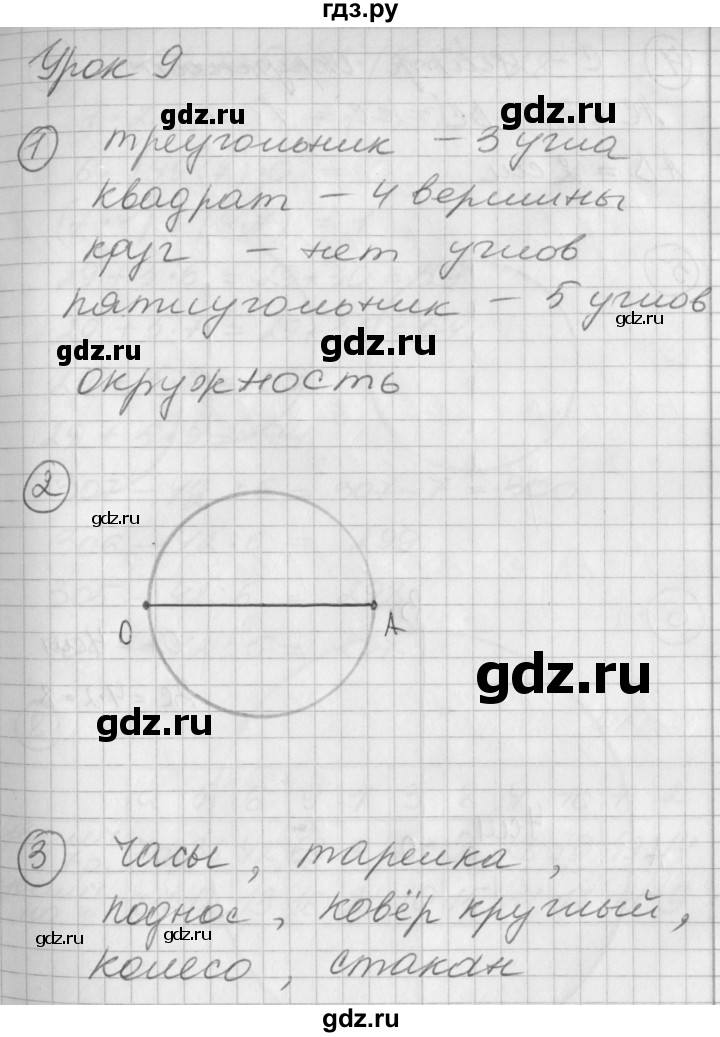 гдз.ру
Урок 9
gdz.ru
gdz.ru
1 треугольник – 3 угла
квадрат – 4 вершины
круг – нет углов
пятиугольник – 5 углов
gdz.ru
gdz.ru
gdz.ru
окружность
2
gdz.ru
О
А
gdz.ru
gdz.ru
3 Часы, тарелка,
поднос, ковёр круглый,
gdz.ru
gdz.ru
колесо, стакан
gdz.ru